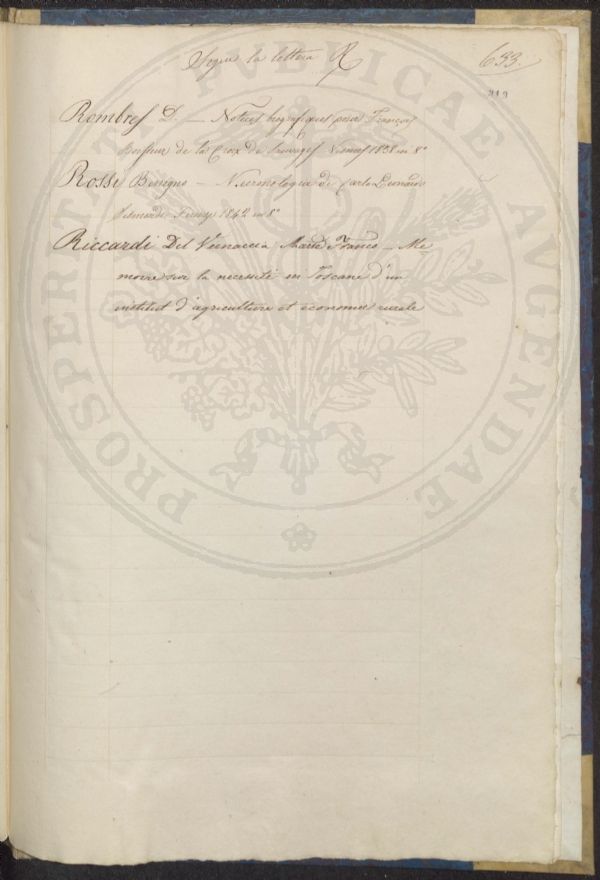 Segue la lettera R
633.
319
Rombres D. — Notices biografiques pour François
Boissieur de la Croix de Sauvages Nismes 1838 in 8°
Rossi Benigno — Necrologia di Carlo Leonardo
Sismondi Firenze 1842 in 8°
Riccardi Del Vernaccia Marie Franco — Me
moire sur la necessité en Toscane d'un
institut d'agriculture et economie rurale
PROSPERITATI PVBLICAE AVGENDAE